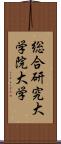 総合研究大
学院大学